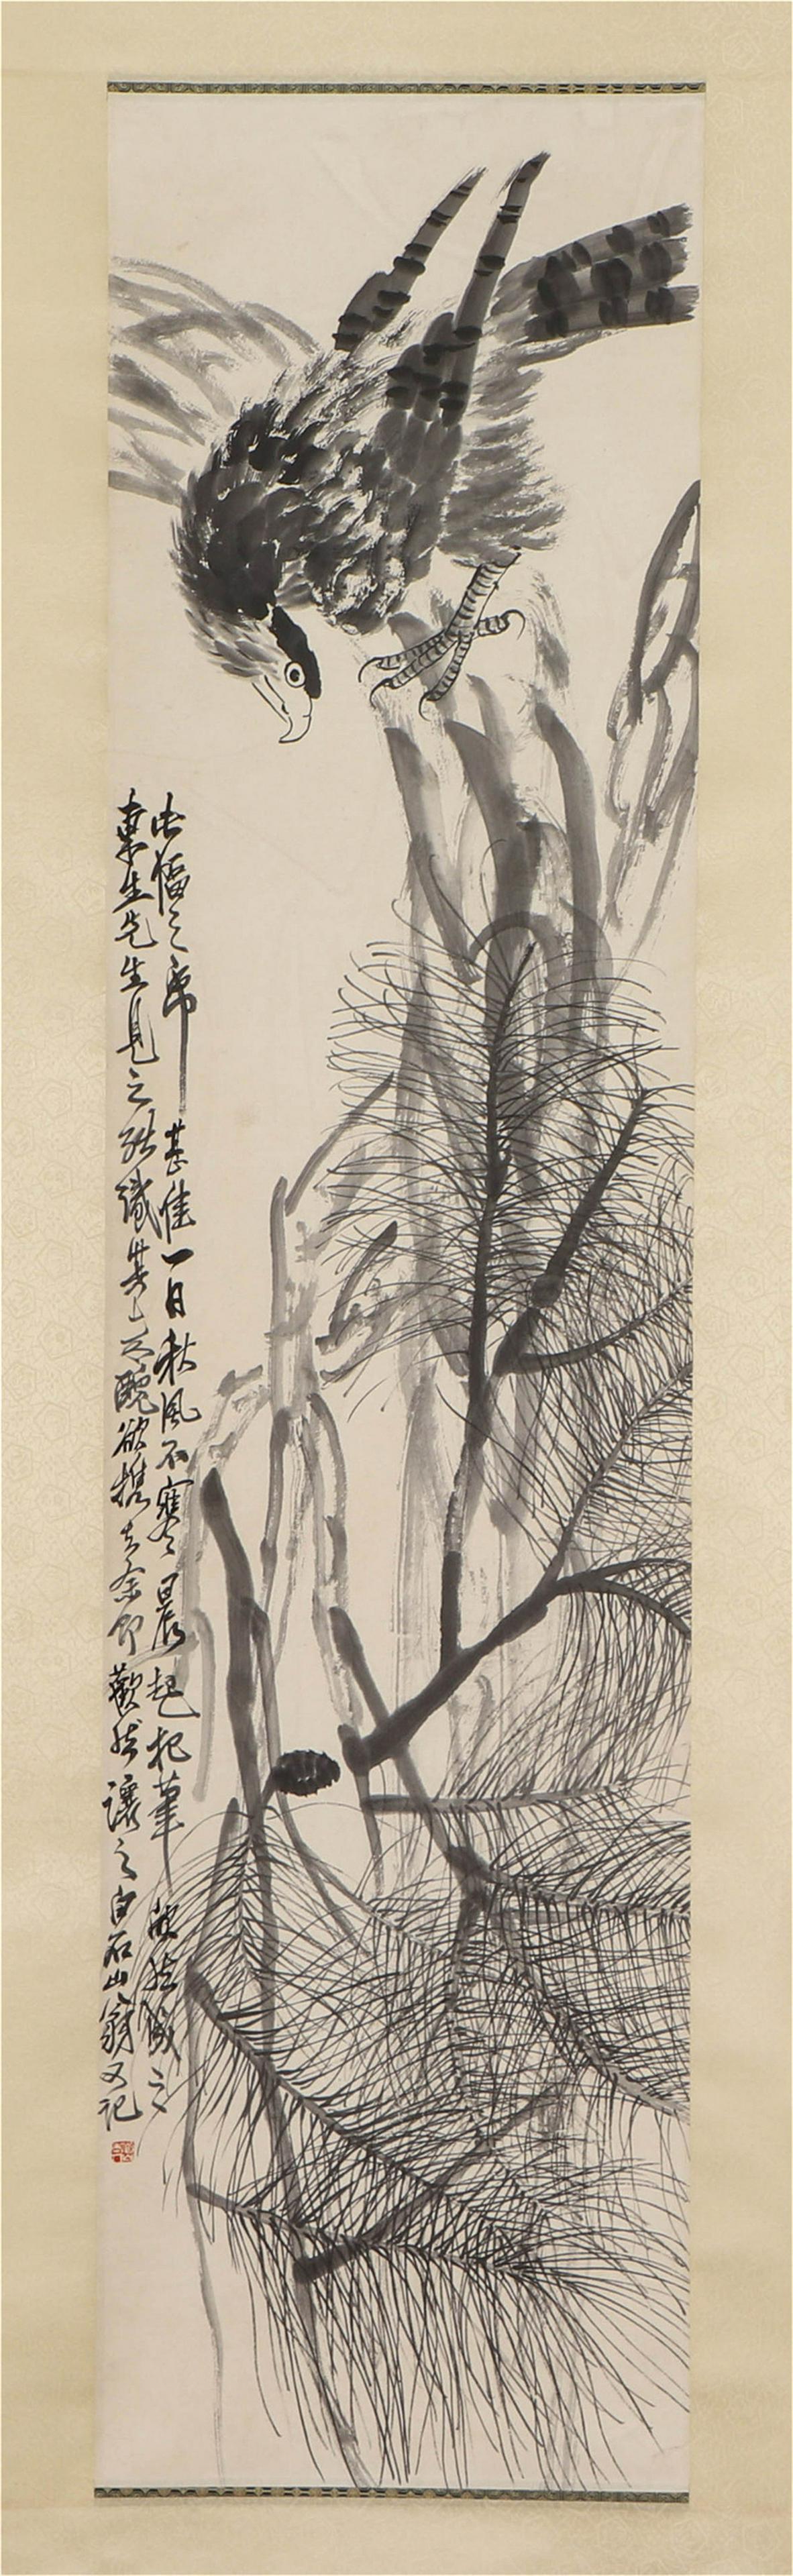 此幅之帋甚佳一日秋風不寒晨起把筆欣然成之
東生先生見之能識其工醜欲攜去余即歡然讓之白石山翁又記